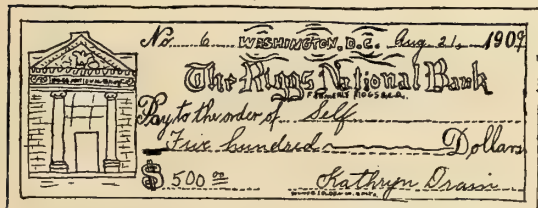 No. 6 WASHINGTON, D.C. Aug. 21, 1909
The Riggs National Bank
FORMERLY RIGGS & CO.
Pay to the order of Self
Five hundred Dollars
$ 500 00
Kathryn